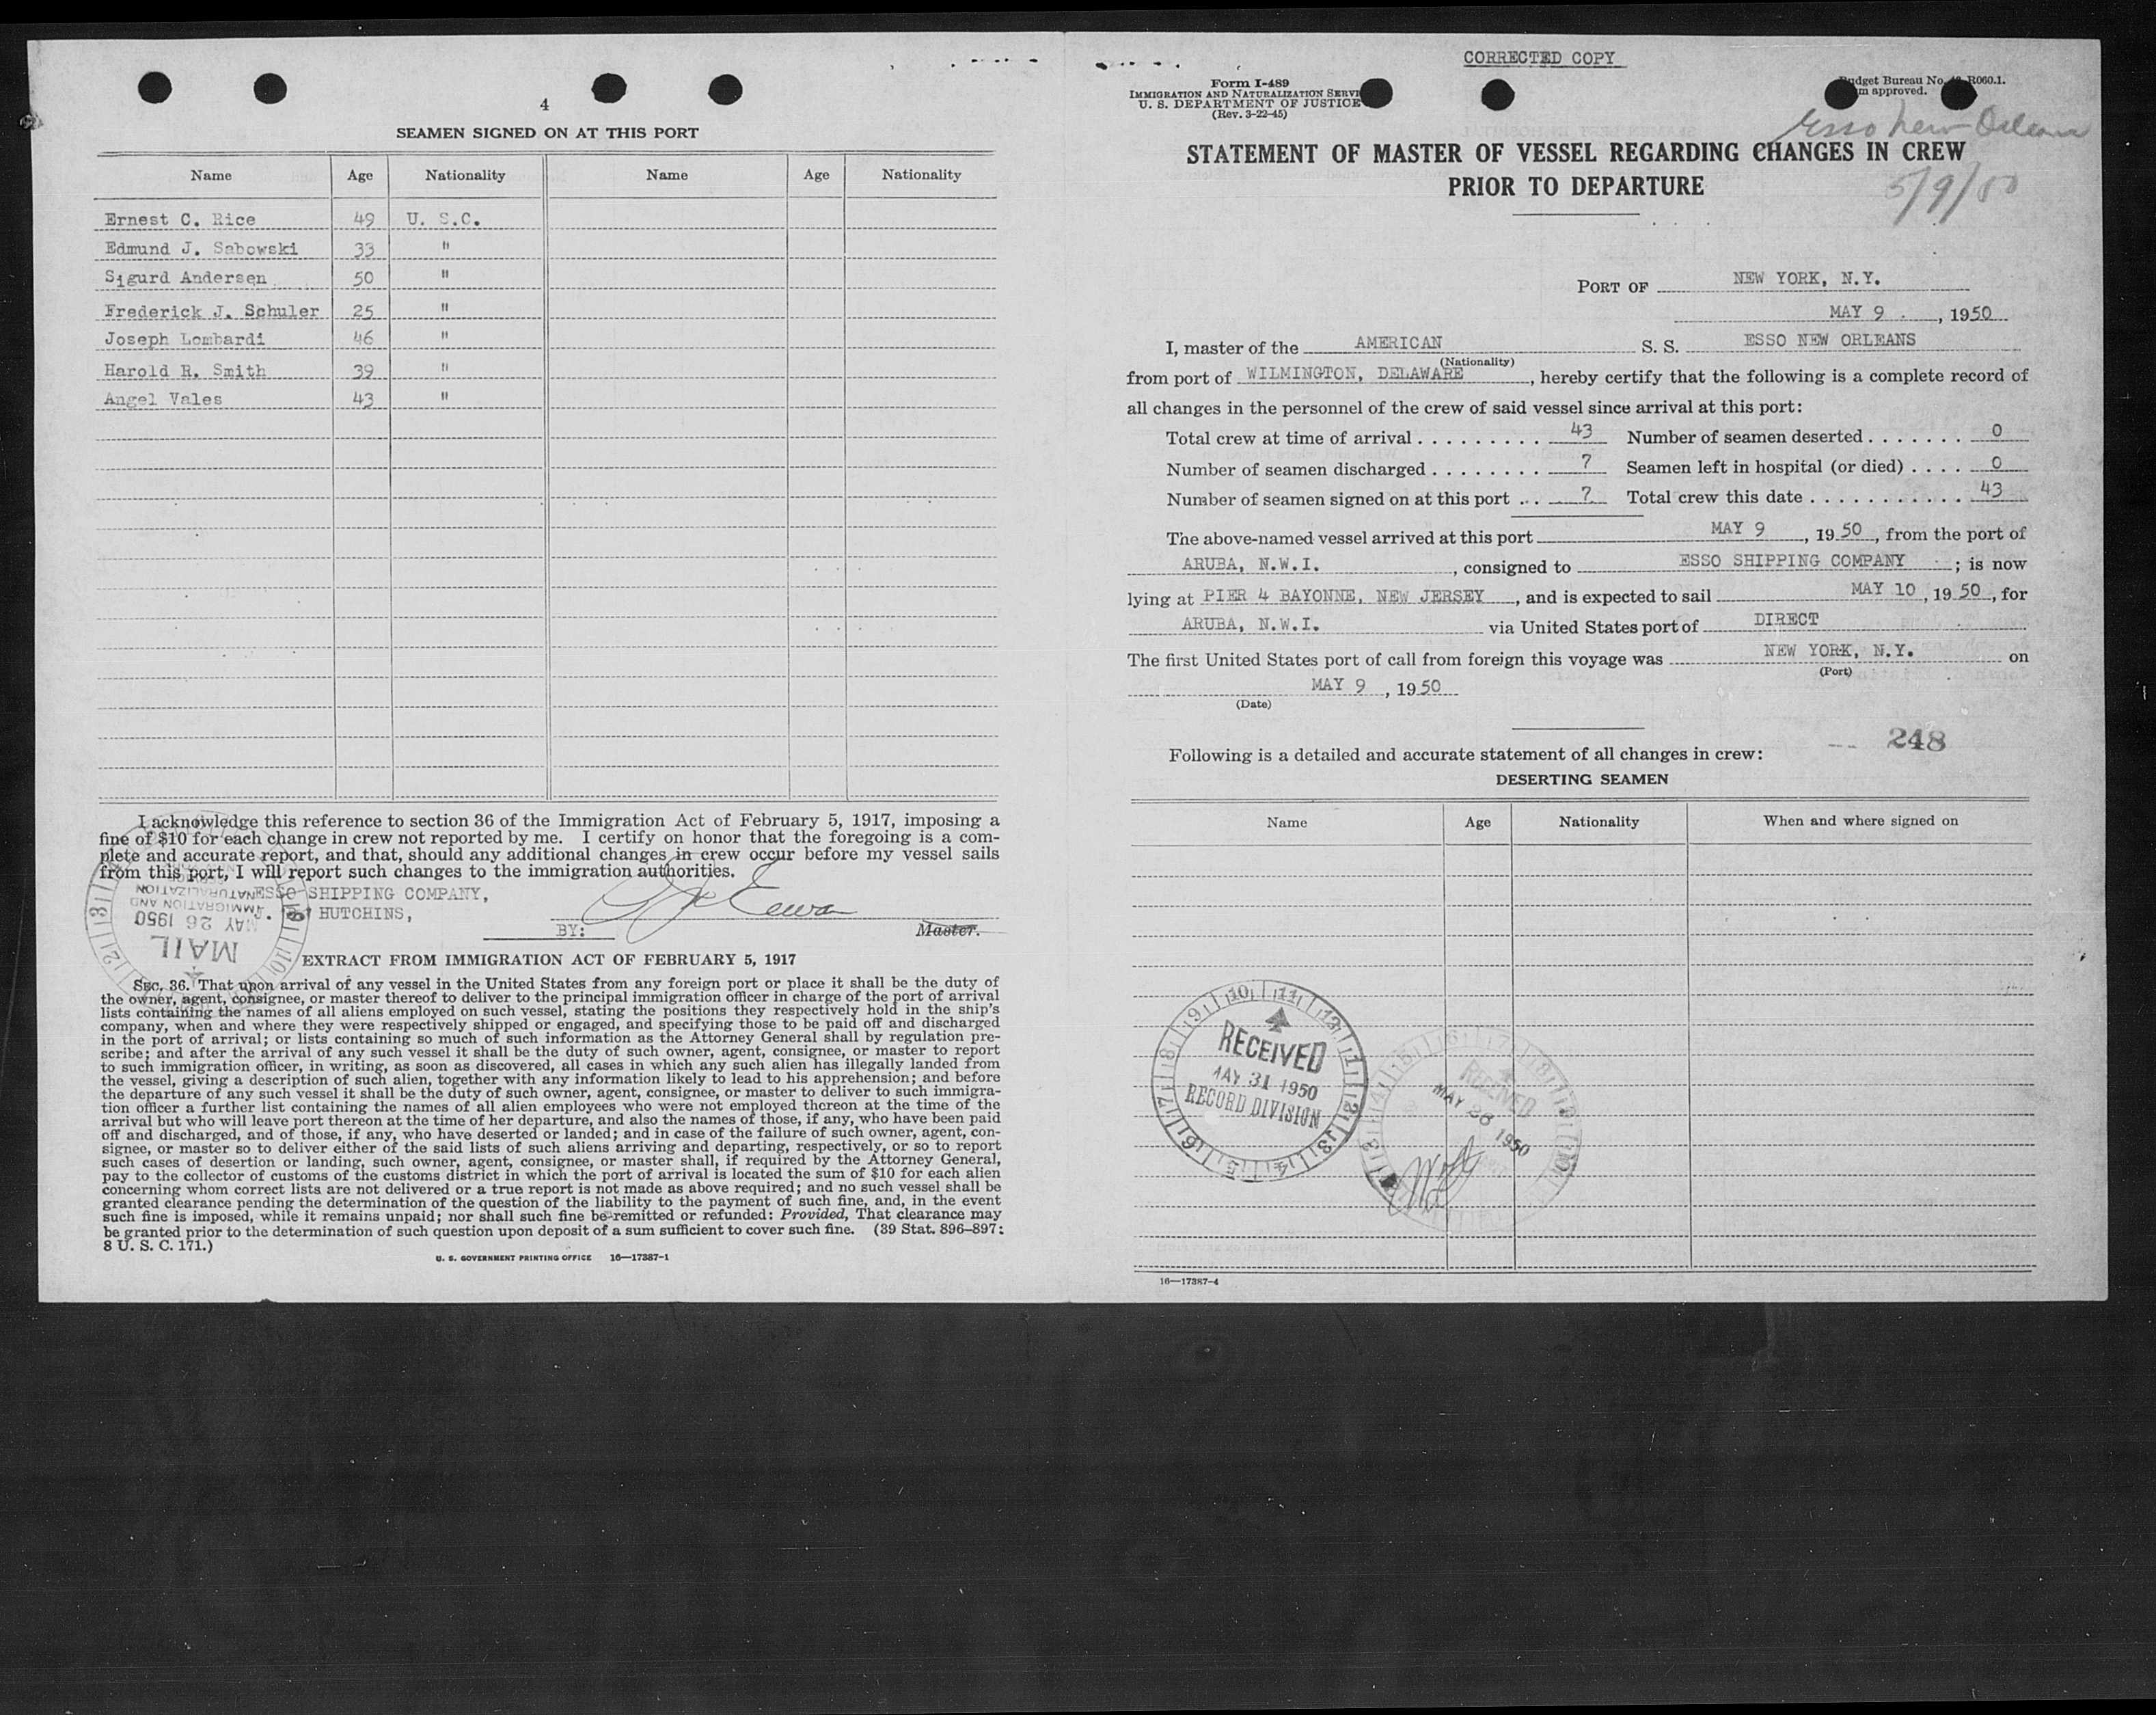 4
SEAMEN SIGNED ON AT THIS PORT
Name Age Nationality Name Age Nationality
Ernest C. Rice 49 U. S.C.
Edmund J. Sabowski 33 "
Sigurd Andersen 50 "
Frederick J. Schuler 25 "
Joseph Lombardi 46 "
Harold R. Smith 39 "
Angel Vales 43 "
I acknowledge this reference to section 36 of the Immigration Act of February 5, 1917, imposing a
fine of $10 for each change in crew not reported by me. I certify on honor that the foregoing is a com-
plete and accurate report, and that, should any additional changes in crew occur before my vessel sails
from this port, I will report such changes to the immigration authorities.
ESSO SHIPPING COMPANY,
HUTCHINS,
BY:
Master.
MAIL
MAY 26 1950
IMMIGRATION AND
NATURALIZATION
EXTRACT FROM IMMIGRATION ACT OF FEBRUARY 5, 1917
SEC. 36. That upon arrival of any vessel in the United States from any foreign port or place it shall be the duty of
the owner, agent, consignee, or master thereof to deliver to the principal immigration officer in charge of the port of arrival
lists containing the names of all aliens employed on such vessel, stating the positions they respectively hold in the ship's
company, when and where they were respectively shipped or engaged, and specifying those to be paid off and discharged
in the port of arrival; or lists containing so much of such information as the Attorney General shall by regulation pre-
scribe; and after the arrival of any such vessel it shall be the duty of such owner, agent, consignee, or master to report
to such immigration officer, in writing, as soon as discovered, all cases in which any such alien has illegally landed from
the vessel, giving a description of such alien, together with any information likely to lead to his apprehension; and before
the departure of any such vessel it shall be the duty of such owner, agent, consignee, or master to deliver to such immigra-
tion officer a further list containing the names of all alien employees who were not employed thereon at the time of the
arrival but who will leave port thereon at the time of her departure, and also the names of those, if any, who have been paid
off and discharged, and of those, if any, who have deserted or landed; and in case of the failure of such owner, agent, con-
signee, or master so to deliver either of the said lists of such aliens arriving and departing, respectively, or so to report
such cases of desertion or landing, such owner, agent, consignee, or master shall, if required by the Attorney General,
pay to the collector of customs of the customs district in which the port of arrival is located the sum of $10 for each alien
concerning whom correct lists are not delivered or a true report is not made as above required; and no such vessel shall be
granted clearance pending the determination of the question of the liability to the payment of such fine, and, in the event
such fine is imposed, while it remains unpaid; nor shall such fine be remitted or refunded: Provided, That clearance may
be granted prior to the determination of such question upon deposit of a sum sufficient to cover such fine. (39 Stat. 896-897;
8 U. S. C. 171.)
U. S. GOVERNMENT PRINTING OFFICE 16—17387-1
CORRECTED COPY
Form I-489
IMMIGRATION AND NATURALIZATION
U. S. DEPARTMENT OF JUSTICE
(Rev. 3-22-45)
Budget Bureau No. R060.1.
approved.
Esso New Orleans
5/9/50
STATEMENT OF MASTER OF VESSEL REGARDING CHANGES IN CREW
PRIOR TO DEPARTURE
PORT OF NEW YORK, N.Y.
MAY 9, 1950
I, master of the AMERICAN S. S. ESSO NEW ORLEANS
(Nationality)
from port of WILMINGTON, DELAWARE, hereby certify that the following is a complete record of
all changes in the personnel of the crew of said vessel since arrival at this port:
Total crew at time of arrival 43 Number of seamen deserted 0
Number of seamen discharged 7 Seamen left in hospital (or died) 0
Number of seamen signed on at this port 7 Total crew this date 43
The above-named vessel arrived at this port MAY 9, 1950, from the port of
ARUBA, N.W.I., consigned to ESSO SHIPPING COMPANY; is now
lying at PIER 4 BAYONNE, NEW JERSEY, and is expected to sail MAY 10, 1950, for
ARUBA, N.W.I. via United States port of DIRECT
The first United States port of call from foreign this voyage was NEW YORK, N.Y. on
(Port)
MAY 9, 1950
(Date)
248
Following is a detailed and accurate statement of all changes in crew:
DESERTING SEAMEN
Name Age Nationality When and where signed on
RECEIVED
MAY 31 1950
RECORD DIVISION
RECEIVED
MAY 26 1950
16—17387-4